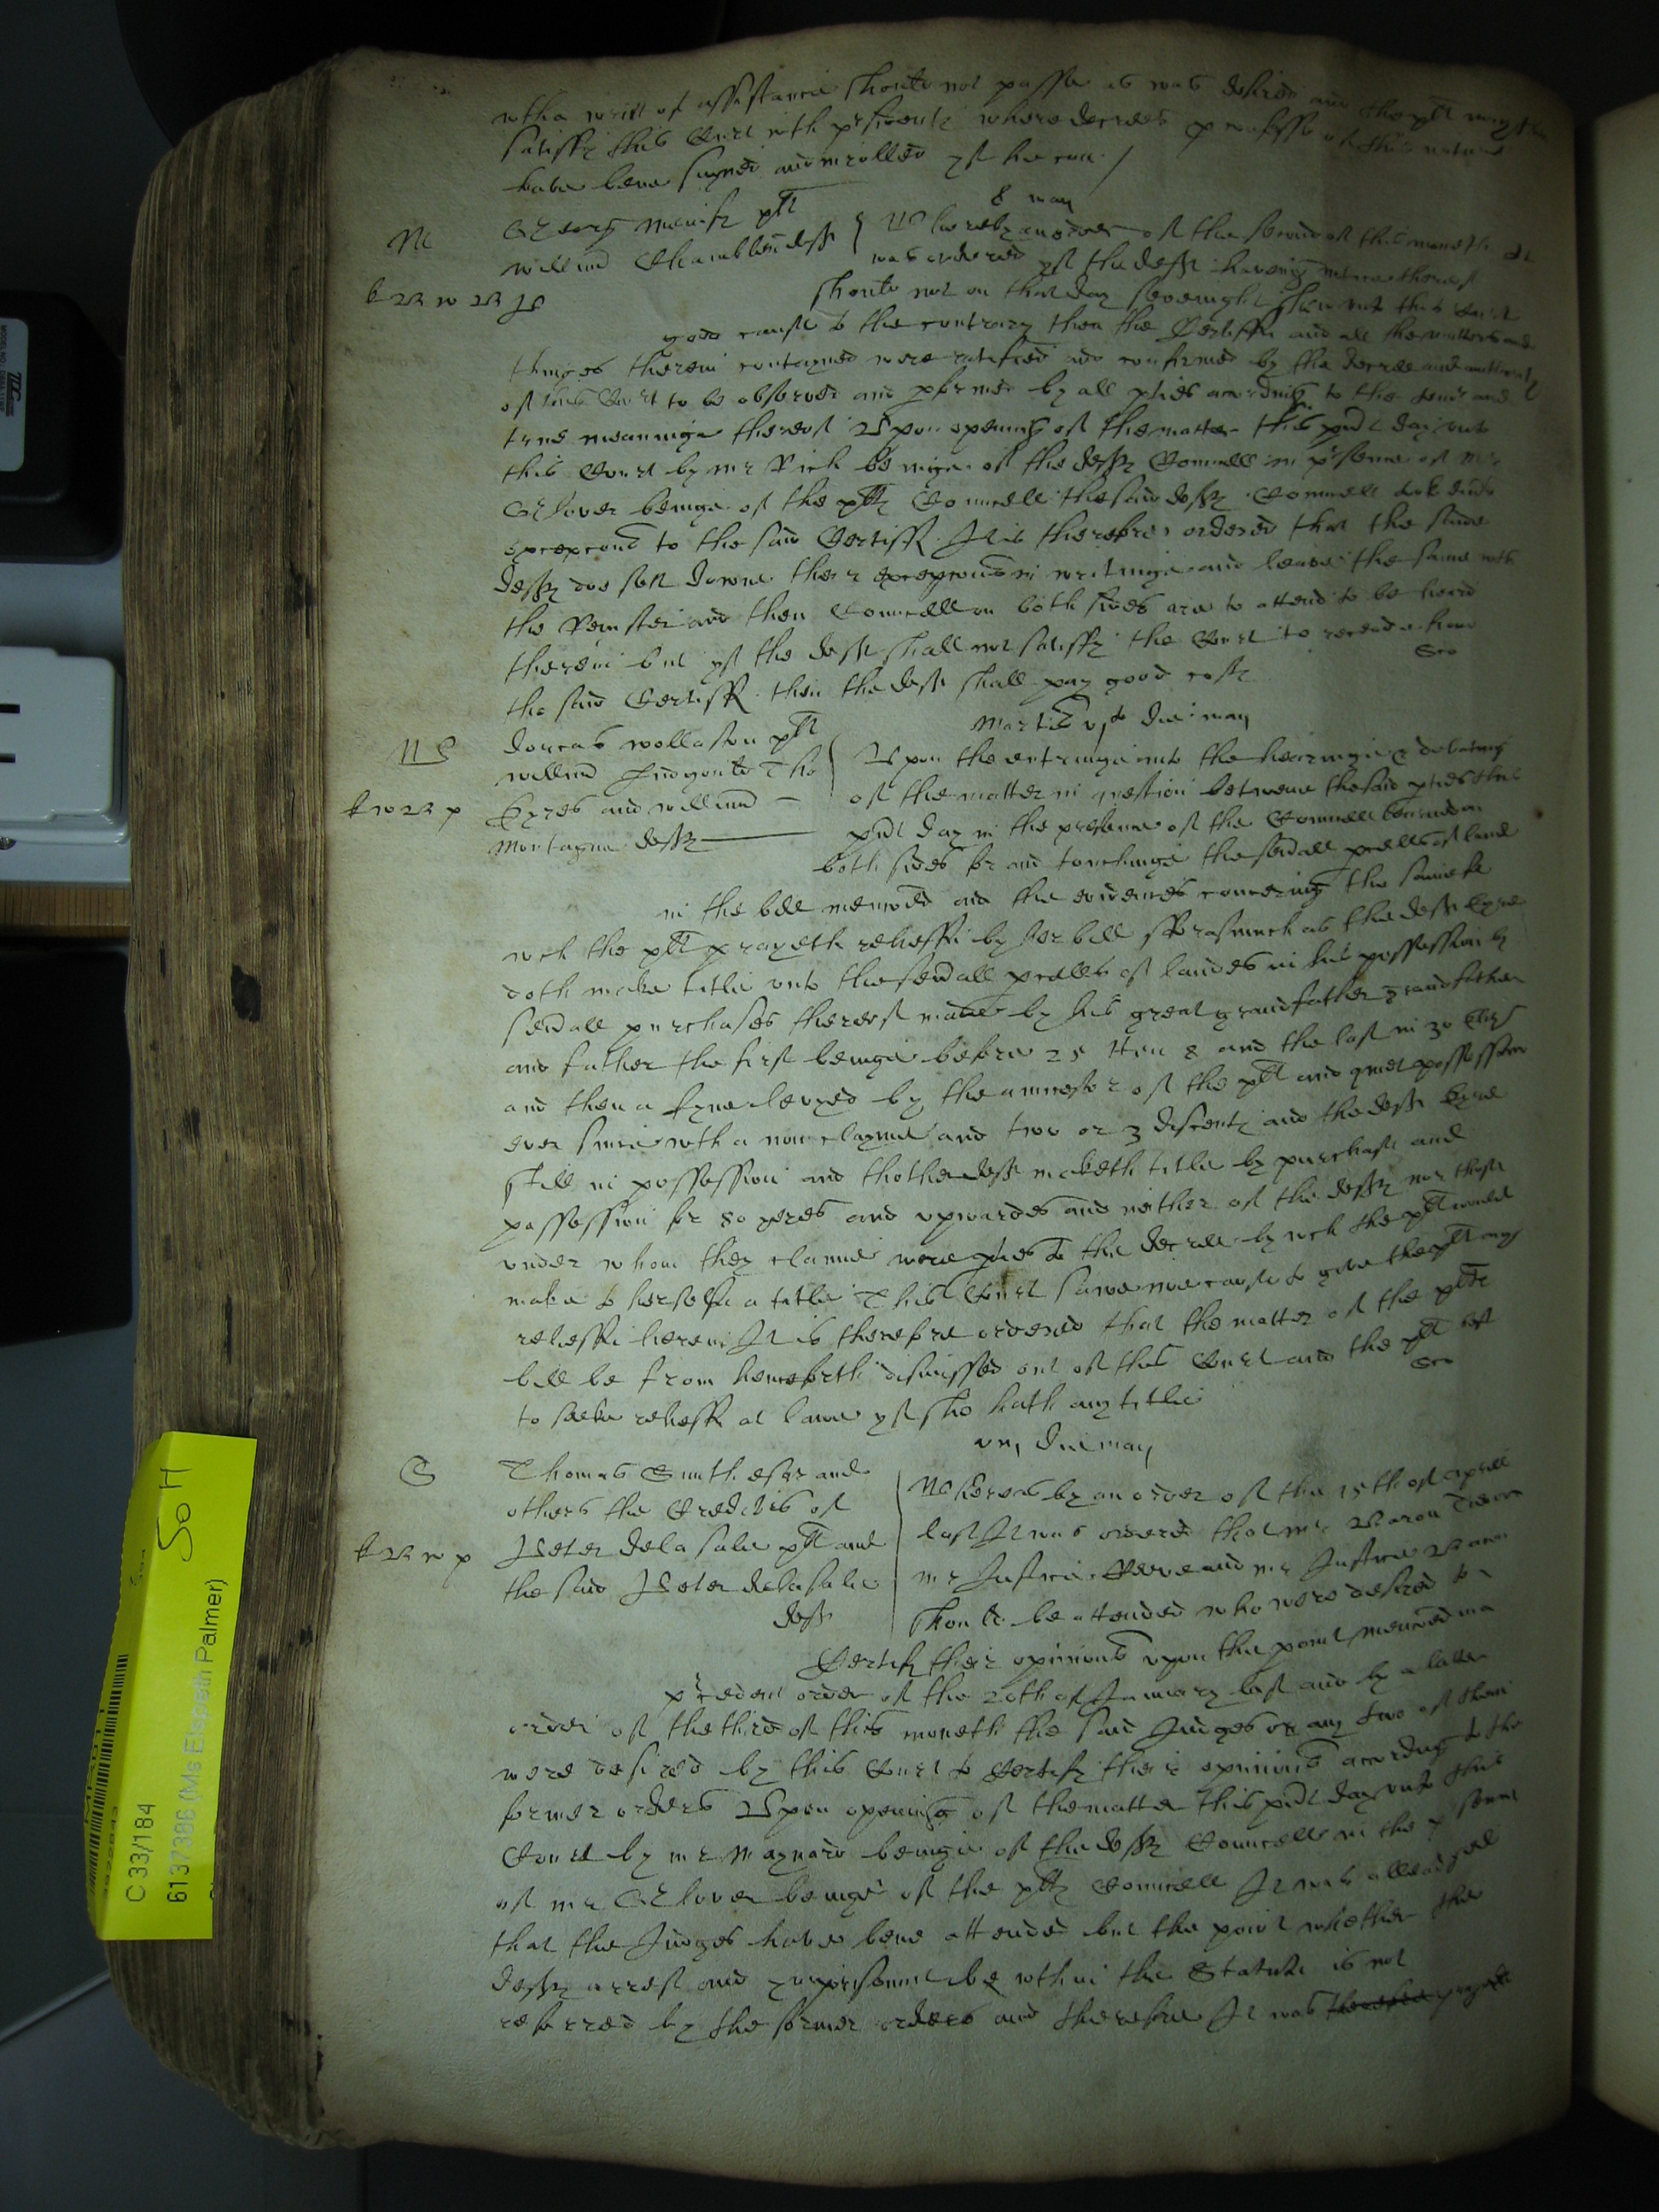 wth a writt of assistance should not passe as was desired and the plt may
satisfy this Court with psidents where decrees
have bene signed and inrolled yf he can /
8 may
M
plt
willm
Whereby an order of the second of this moneth
was ordered yf the deft haveing notice thereof
should not on that day sevenight shew unto this Court
good cause to the contrary then the Certiffic and all the matters and
thinges therein contayned were ratefied and confirmed by the decree and authority
of this Court to be observed and pformed by all pties according to the tenor and
true meaninge thereof Upon opening of the matter this psnt day unto
this Court by mr Rich beinge of the defts Councell in psence of mr
Glover beinge of the plts Councell the said defts Councell tooke
excepcons to the said Certiff. It is therefore ordered that the said
defts doe sett downe their excepcons in writinge and leave the same with
the Remster and then Councell on both sides are to attend to be heard
therein but yf the deft shall not satisfy the Court to
the said Certiff. then the deft shall pay good costs
Martis die may
W
Dorcas wollaston plt
willm Tho
Eyres and willm
Mountagne defts
Upon the entringe into the hearinge & debating
of the matter in question betweene the said pties this
psnt day in the presence of the Councell learned on
both sides for and touchinge the sevrall pcells of land
in the bill menconed and the evidences concerning the same for
wch the plt prayeth releiffe by her bill fforasmuch as the deft Eyre
doth make title unto the sevrall pcells of landes in his possession by
sevrall purchases thereof made by his great grandfather grandfather
and father the first beinge before 25 Hen 8 and the last in 30 Eliz
and then a fyne levyed by the ancestor of the plt and quiet possession
ever since wth a non clayme and two or 3 discents and the deft Eyre
still in possession and thother deft maketh title by purchase and
possession for 80 yeres and upwardes and neither of the defts nor those
under whom they clayme were pties to the decree by wch the plt would
make to herselfe a title This Court sawe noe cause to give the plt any
releiffe herein It is therefore ordered that the matter of the plts
bill be from henceforth dismissed out of this Court and the plt left
to seeke releiffe at lawe yf she hath any title
die may
S
Thomas Smith esqr and
others the Creditrs of
Peter delasale plt and
the said Peter delasale
deft
Whereas by an order of the 15th of Aprill
last It was ordered that mr Baron Trevor
mr Justice Reeve and mr Justice Bacon
should be attended who were desired to
Certify their opinions upon the point menconed in a
pcedent order of the 20th of January last and by a latter
order of the third of this moneth the said Judges or any two of them
were desired by this Court to Certify their opinions according to the
former orders Upon opening of the matter this psnt day unto this
Court by mr Maynard beinge of the defts Councell in the psence
of mr Glover beinge of the plts Councell It was alleadged
that the Judges have bene attended but the point whether the
defts arrest and imprisonmt be within the Statute is not
referred by the former orders and therefore It was therefore prayed
SoH
C 33/184
6137386 (Ms Elspeth Palmer)